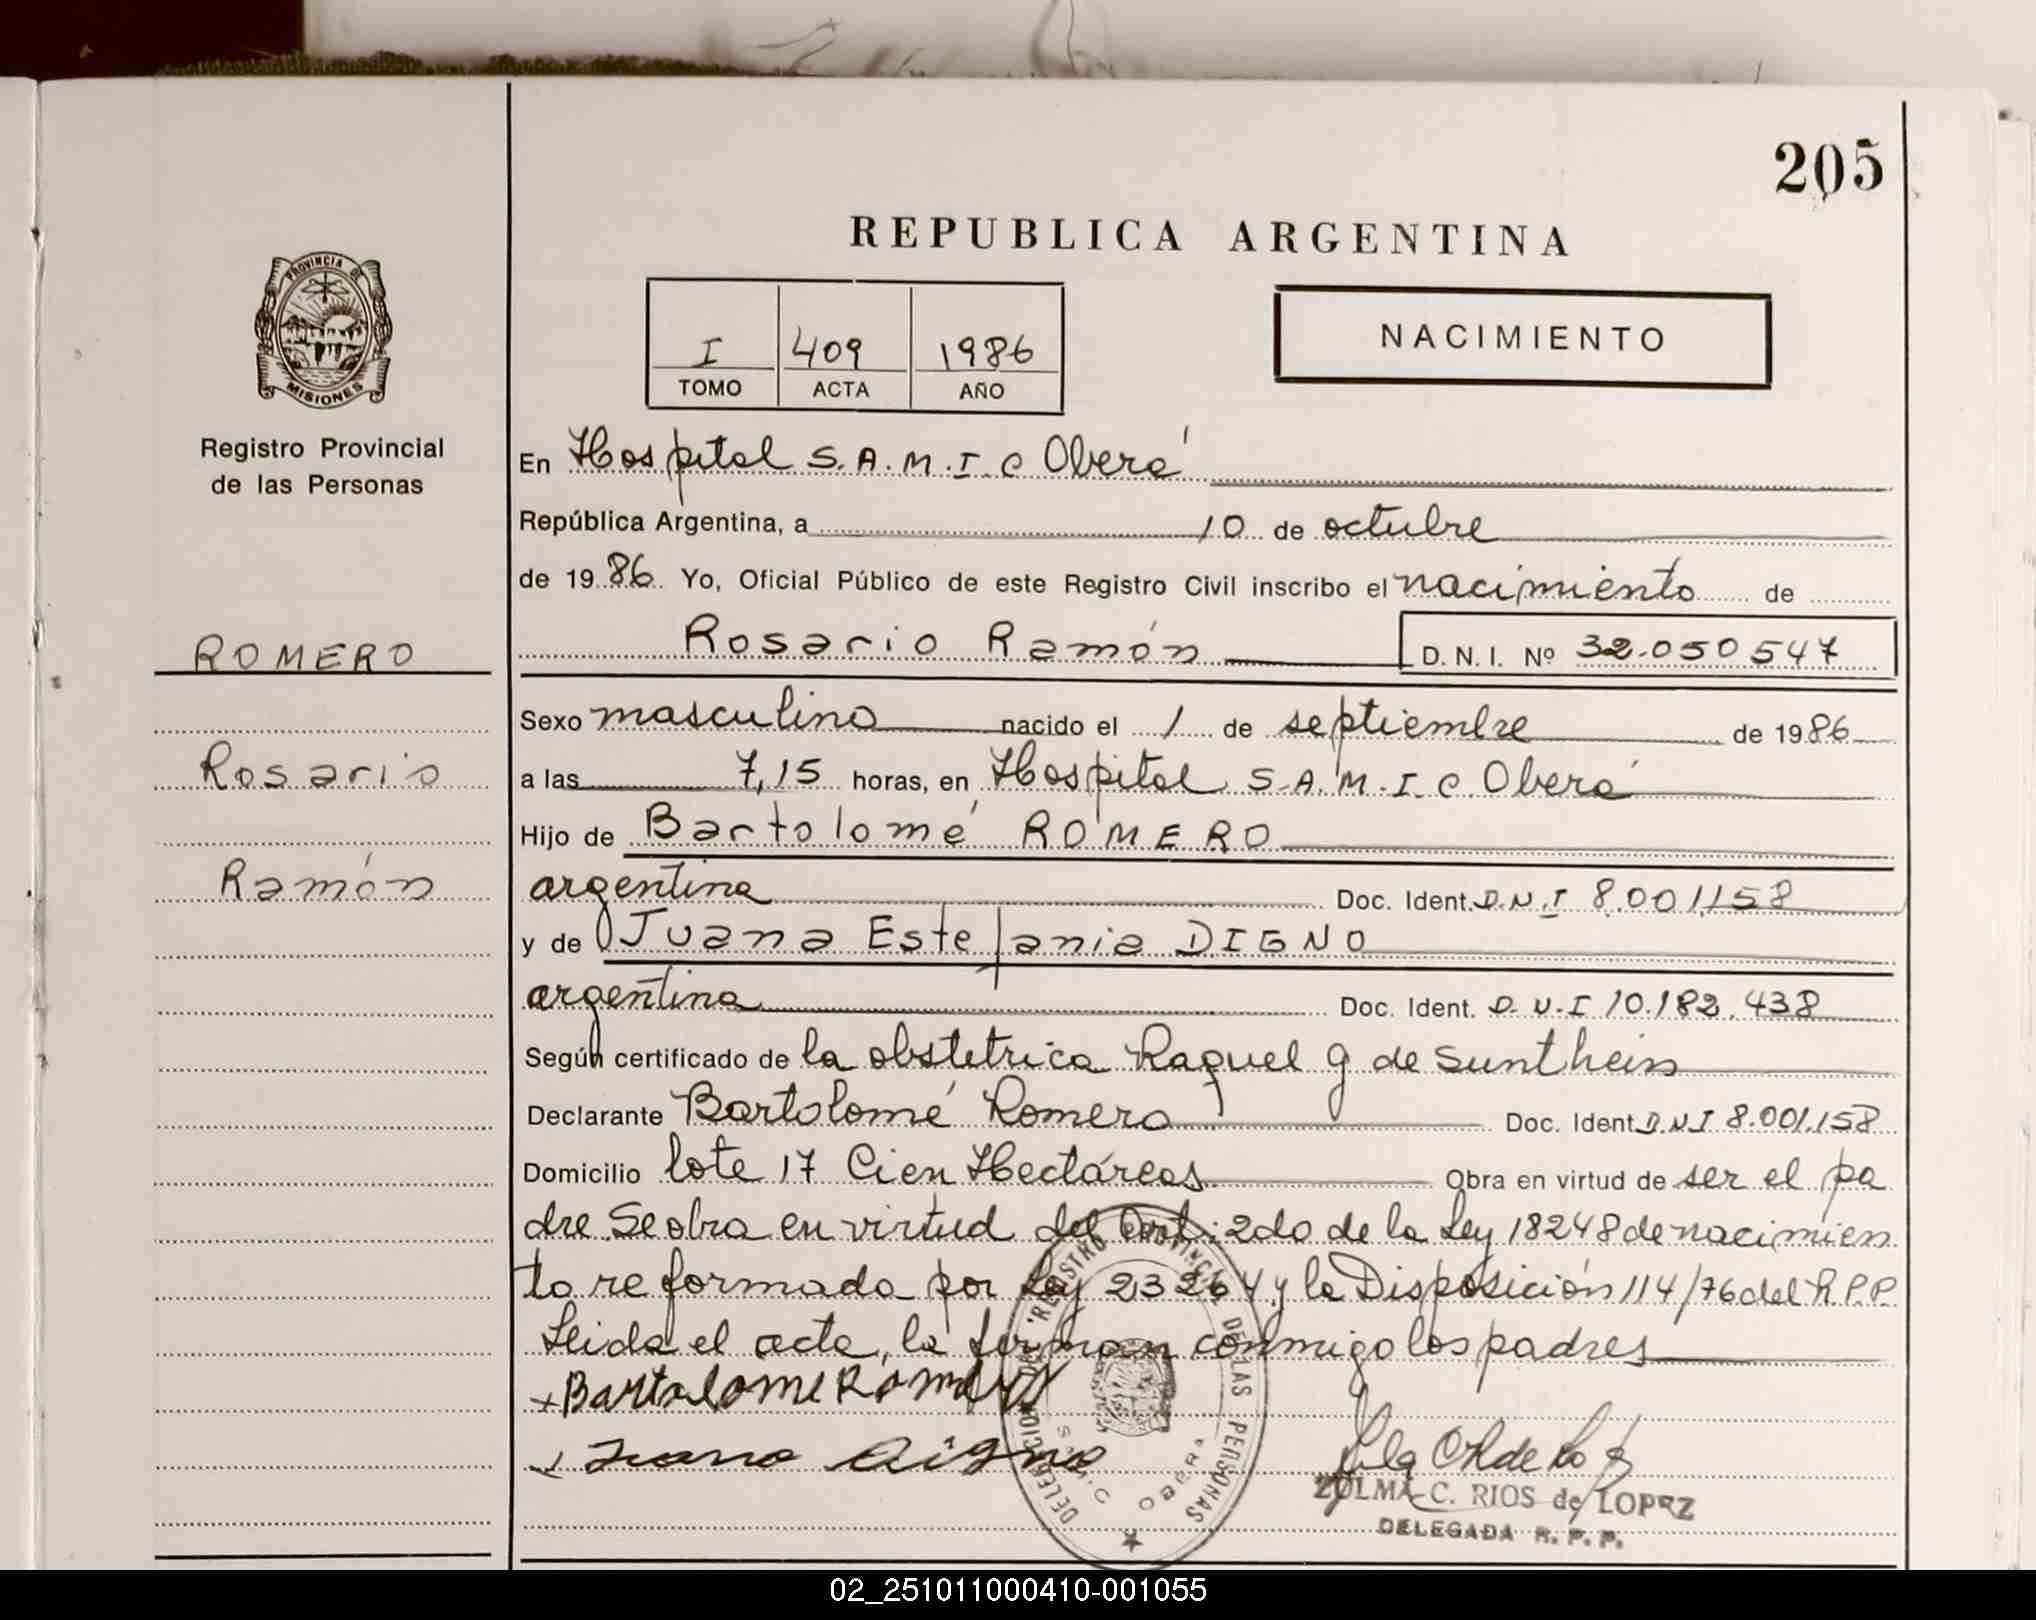 205
REPUBLICA ARGENTINA
PROVINCIA DE
MISIONES
Registro Provincial
de las Personas
I 409 1986
TOMO ACTA AÑO
NACIMIENTO
En Hospital S.A.M.I.C Oberá
República Argentina, a 10 de octubre
de 1986 Yo, Oficial Público de este Registro Civil inscribo el nacimiento de
ROMERO
Rosario Ramón D.N.I. Nº 32.050547
Sexo masculino nacido el 1 de septiembre de 1986
Rosario
a las 7,15 horas, en Hospital S.A.M.I.C. Oberá
Hijo de Bartolomé ROMERO
Ramón
argentina Doc. Ident. D.N.I 8.001.158
y de Juana Estefania DIGNO
argentina Doc. Ident. D.N.I 10.182.438
Según certificado de la obstetrica Raquel g de Sunthein
Declarante Bartolomé Romero Doc. Ident D.N.I 8.001.158
Domicilio lote 17 Cien Hectáreas Obra en virtud de ser el pa
dre. Se obra en virtud del Art: 2do de la Ley 18248 de nacimien
to reformada por Ley 23264 y la Disposición 114/76 del R.P.P.
Leida el acta, la firman conmigo los padres
+ Bartolome Romero
Juana Digno
DELEGACION DEL REGISTRO PROVINCIAL DE LAS PERSONAS
OBERA
ZULMA C. RIOS de LOPEZ
DELEGADA R. P. P.
02_251011000410-001055